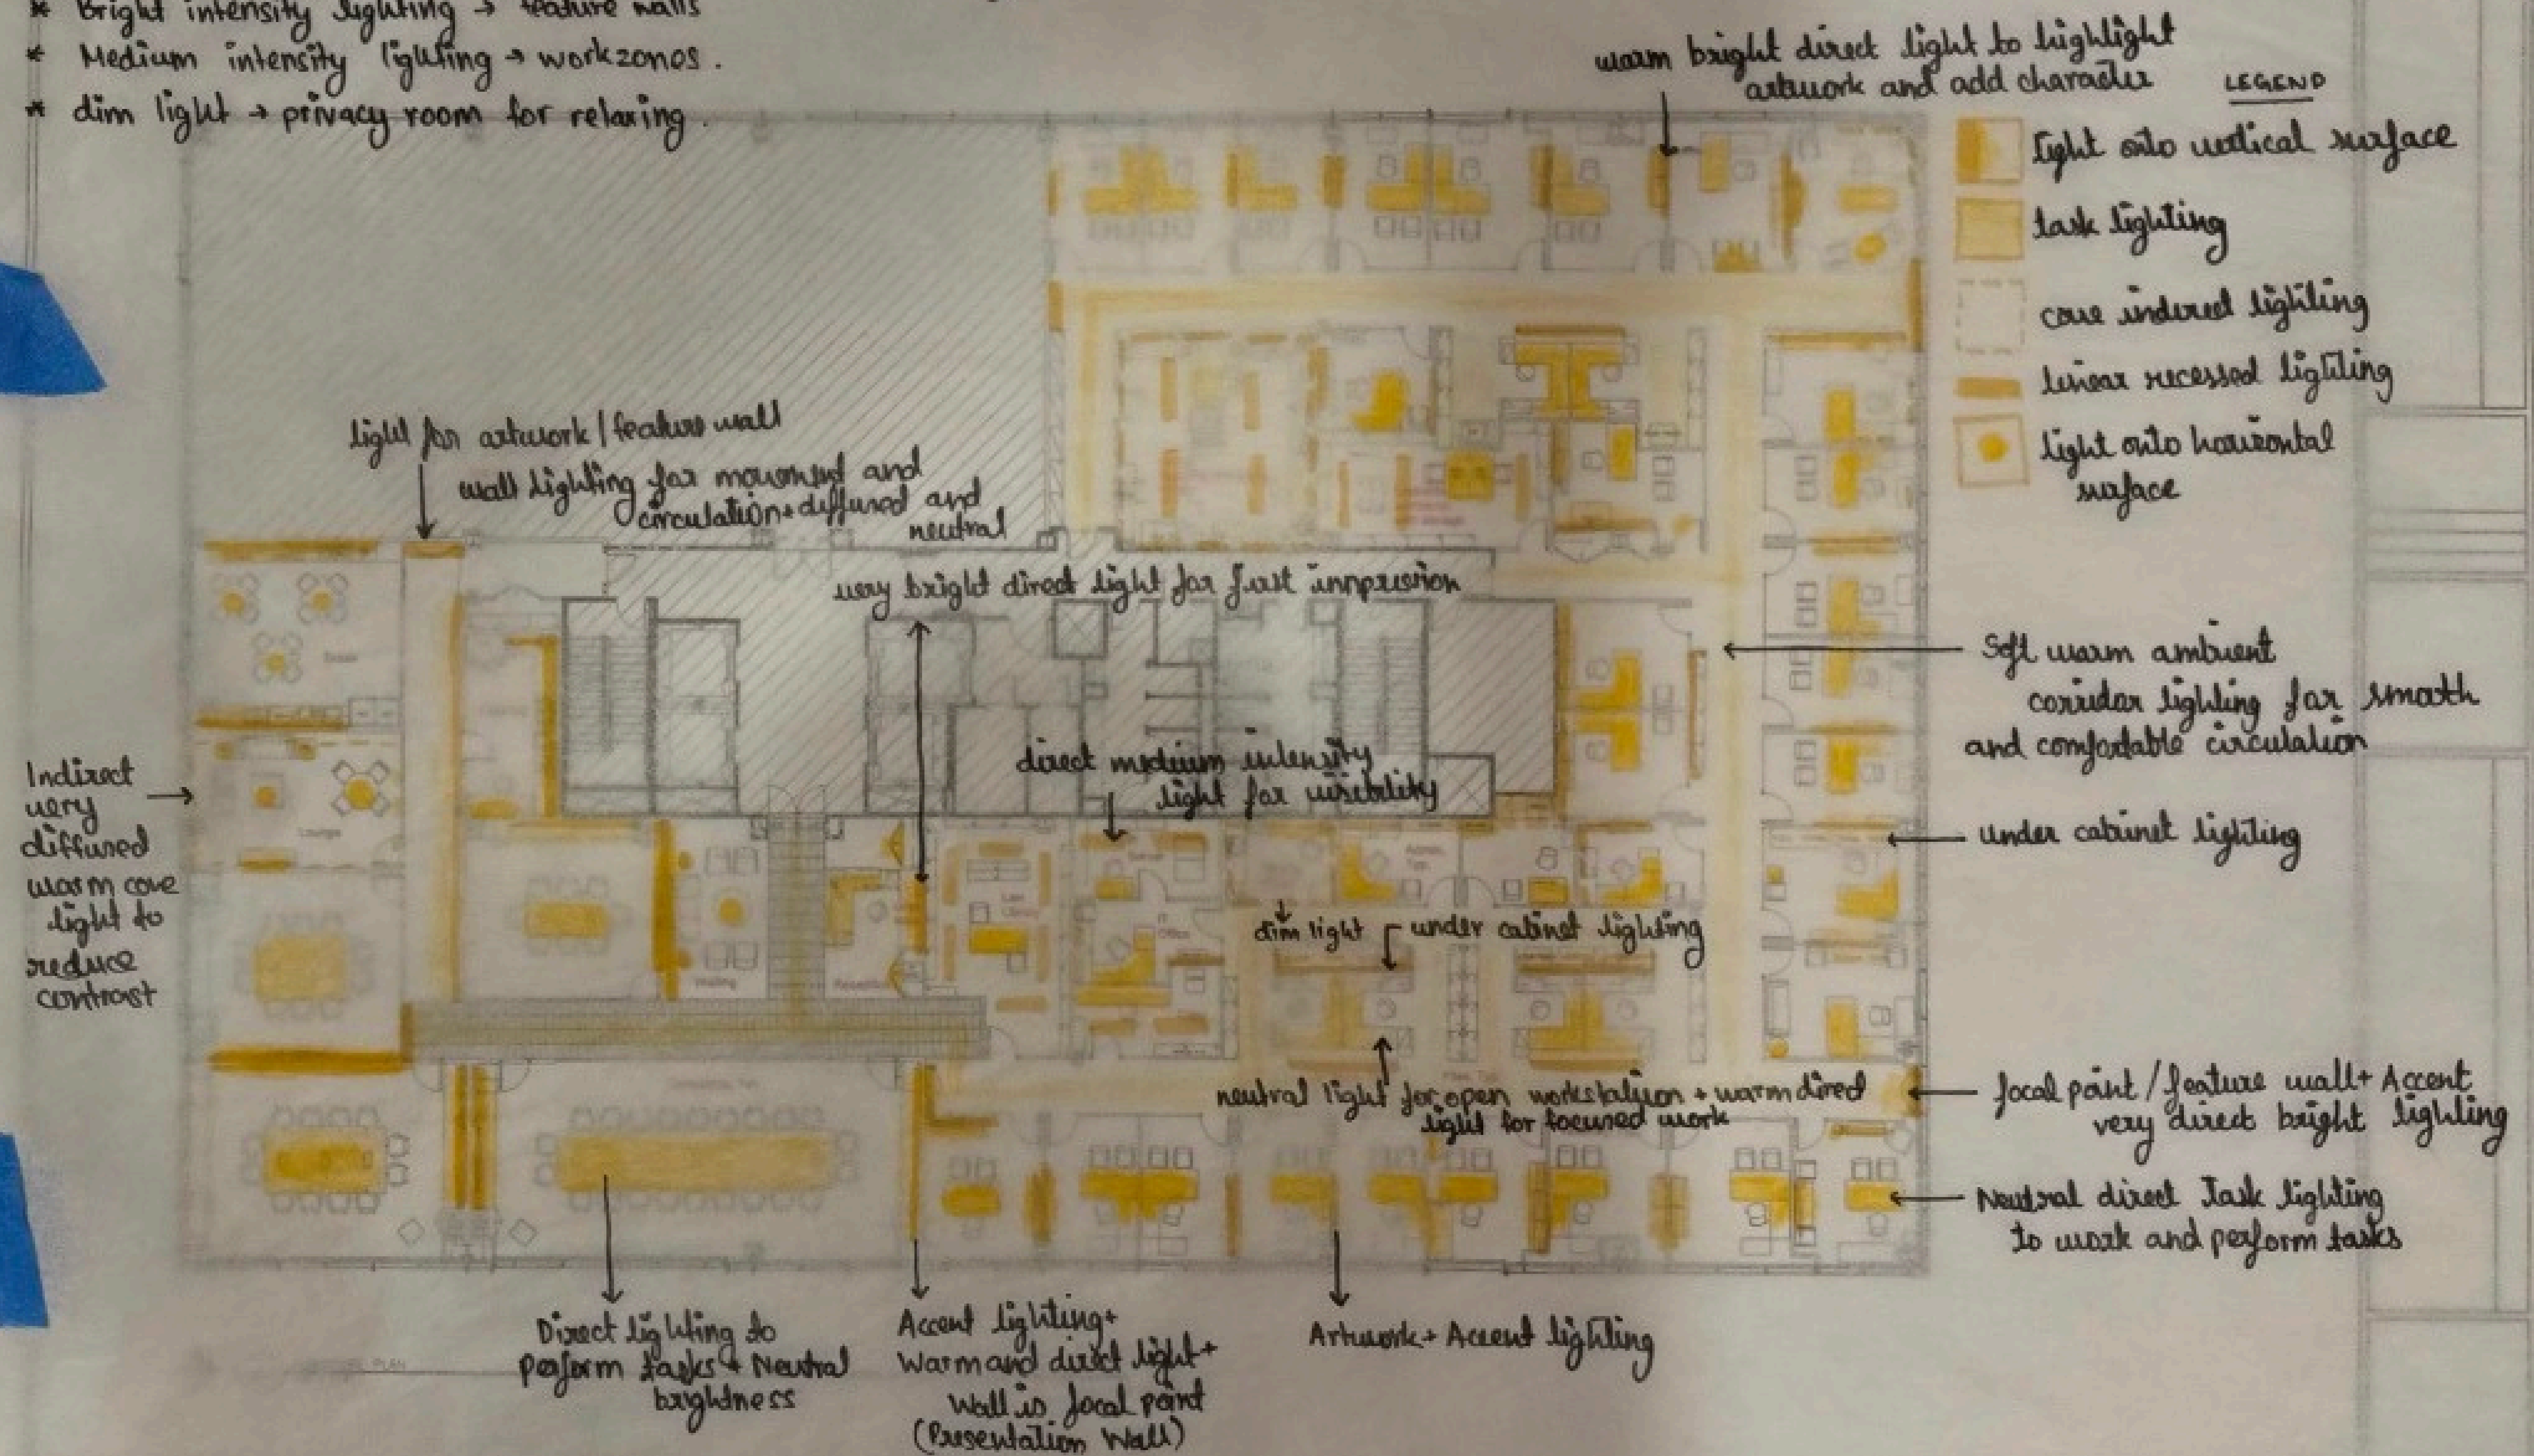 * Bright intensity lighting → feature walls
* Medium intensity lighting → workzones.
* dim light → privacy room for relaxing.
warm bright direct light to highlight
artwork and add character
LEGEND
light onto vertical surface
task lighting
cove indirect lighting
linear recessed lighting
light onto horizontal
surface
light for artwork/feature wall
wall lighting for movement and
circulation + diffused and
neutral
very bright direct light for first impression
Soft warm ambient
corridor lighting for smooth
and comfortable circulation
direct medium intensity
light for visibility
Indirect
very
diffused
warm cove
light to
reduce
contrast
Lounge
under cabinet lighting
dim light
under cabinet lighting
Office
Waiting
Reception
neutral light for open workstation + warm direct
light for focused work
focal point/feature wall + Accent
very direct bright lighting
Neutral direct task lighting
to work and perform tasks
Direct lighting to
perform tasks + Neutral
brightness
Accent lighting +
Warm and direct light +
Wall is focal point
(Presentation Wall)
Artwork + Accent lighting
PLAN